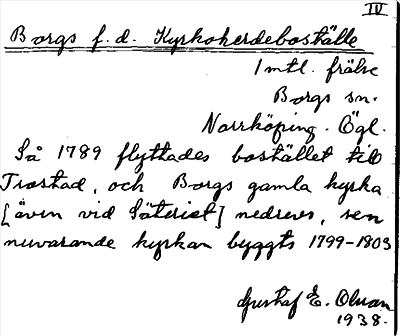 IV
Borgs f. d. Kyrkoherdeboställe
1 mtl. frälse
Borgs sn.
Norrköping. Ögl.
Så 1789 flyttades bostället till
Trostad, och Borgs gamla kyrka
[även vid Säteriet] nedrevs, sen
nuvarande kyrkan byggts 1799-1803
Gustaf E. Olsson
1938.